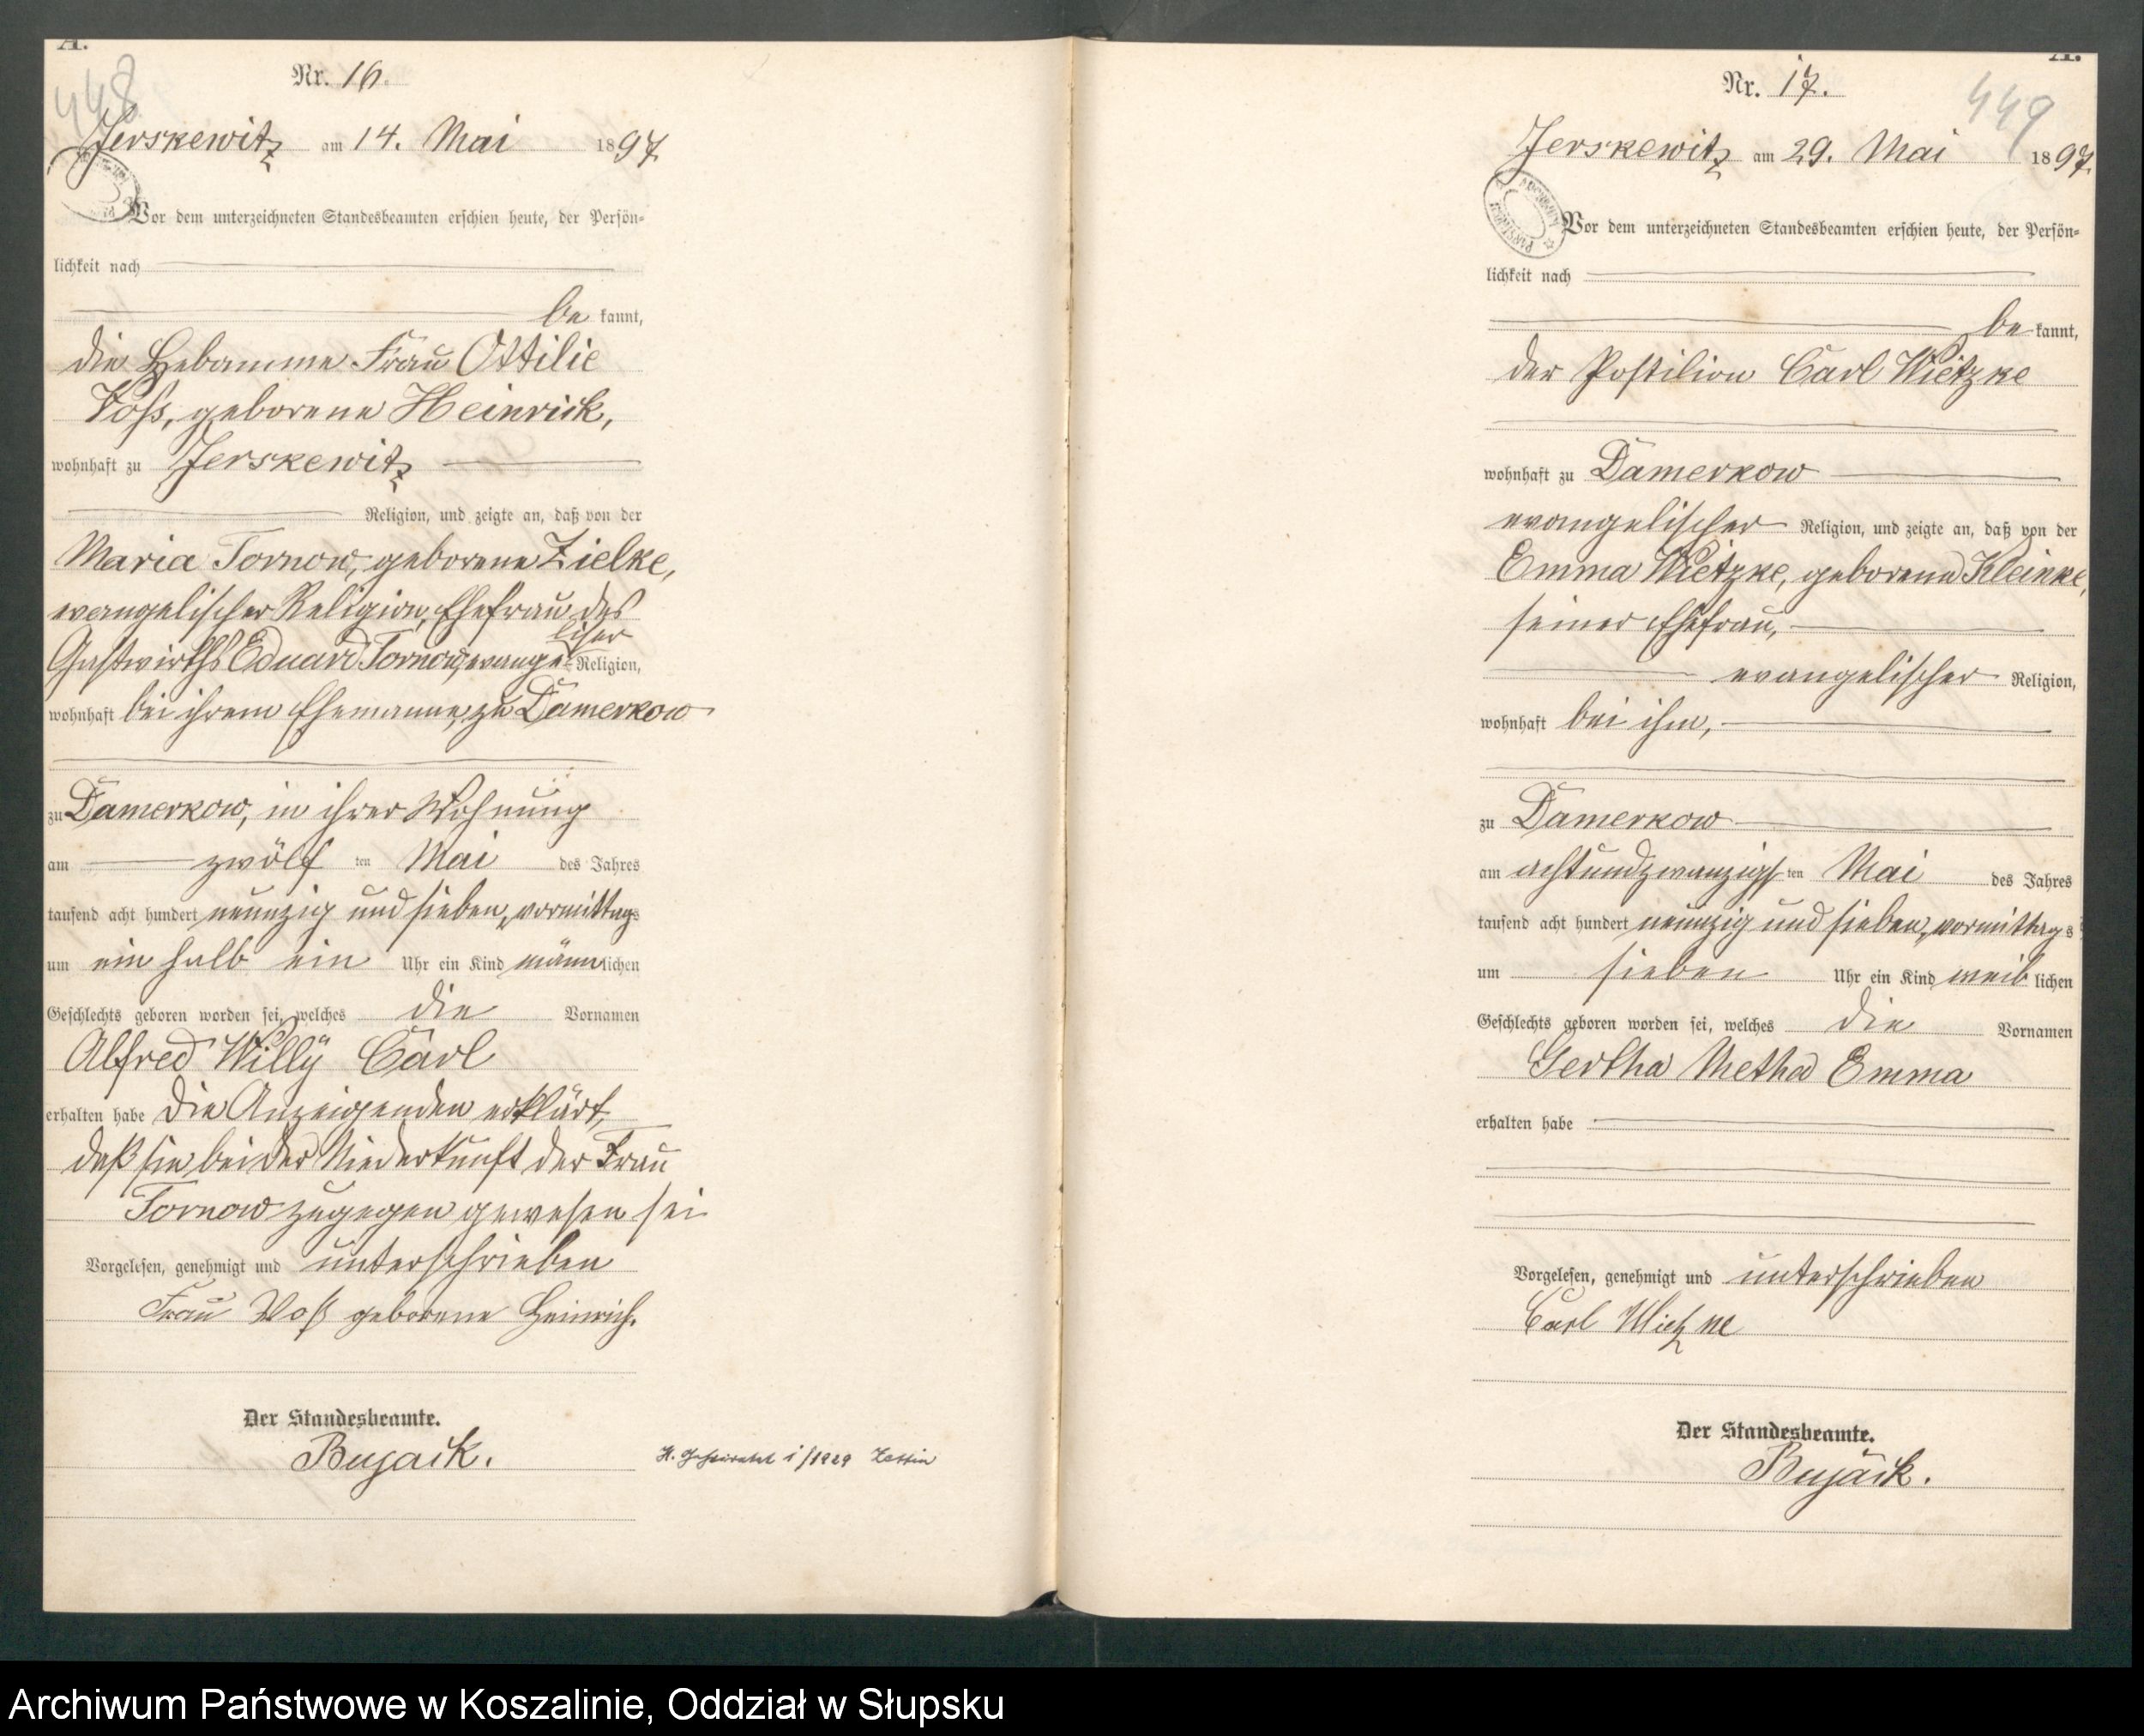 A.
448
Nr. 16.
Jerskewitz am 14. Mai 1897
Vor dem unterzeichneten Standesbeamten erschien heute, der Persön-
lichkeit nach
be kannt,
die Hebamme Frau Ottilie
Voß, geborene Heinrich,
wohnhaft zu Jerskewitz
Religion, und zeigte an, daß von der
Maria Tornow, geborene Zielke,
evangelischer Religion, Ehefrau des
Gastwirths Eduard Tornow, evange-
lischer Religion,
wohnhaft bei ihrem Ehemanne, zu Damerkow
zu Damerkow, in ihrer Wohnung
am zwölf ten Mai des Jahres
tausend acht hundert neunzig und sieben, vormittags
um ein halb ein Uhr ein Kind männlichen
Geschlechts geboren worden sei, welches die Vornamen
Alfred Willÿ Carl
erhalten habe Die Anzeigenden erklärt,
daß sie bei der Niederkunft der Frau
Tornow zugegen gewesen sei
Vorgelesen, genehmigt und unterschrieben
Frau Voß geborene Heinrich.
Der Standesbeamte.
Bujack.
1/1929
A.
449
Nr. 17.
Jerskewitz am 29. Mai 1897.
Vor dem unterzeichneten Standesbeamten erschien heute, der Persön-
lichkeit nach
be kannt,
der Postilion Carl Wietzke
wohnhaft zu Damerkow
evangelischer Religion, und zeigte an, daß von der
Emma Wietzke, geborene Kleinke,
seiner Ehefrau,
evangelischer Religion,
wohnhaft bei ihm,
zu Damerkow
am achtundzwanzigsten Mai des Jahres
tausend acht hundert neunzig und sieben, vormittags
um sieben Uhr ein Kind weib lichen
Geschlechts geboren worden sei, welches die Vornamen
Gertha Metha Emma
erhalten habe
Vorgelesen, genehmigt und unterschrieben
Carl Wietzke
Der Standesbeamte.
Bujack.
Archiwum Państwowe w Koszalinie, Oddział w Słupsku